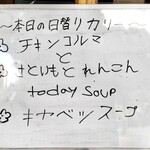 ～本日の日替りカリー～
チキンコルマ
と
さといもとれんこん
today soup
キャベツスープ